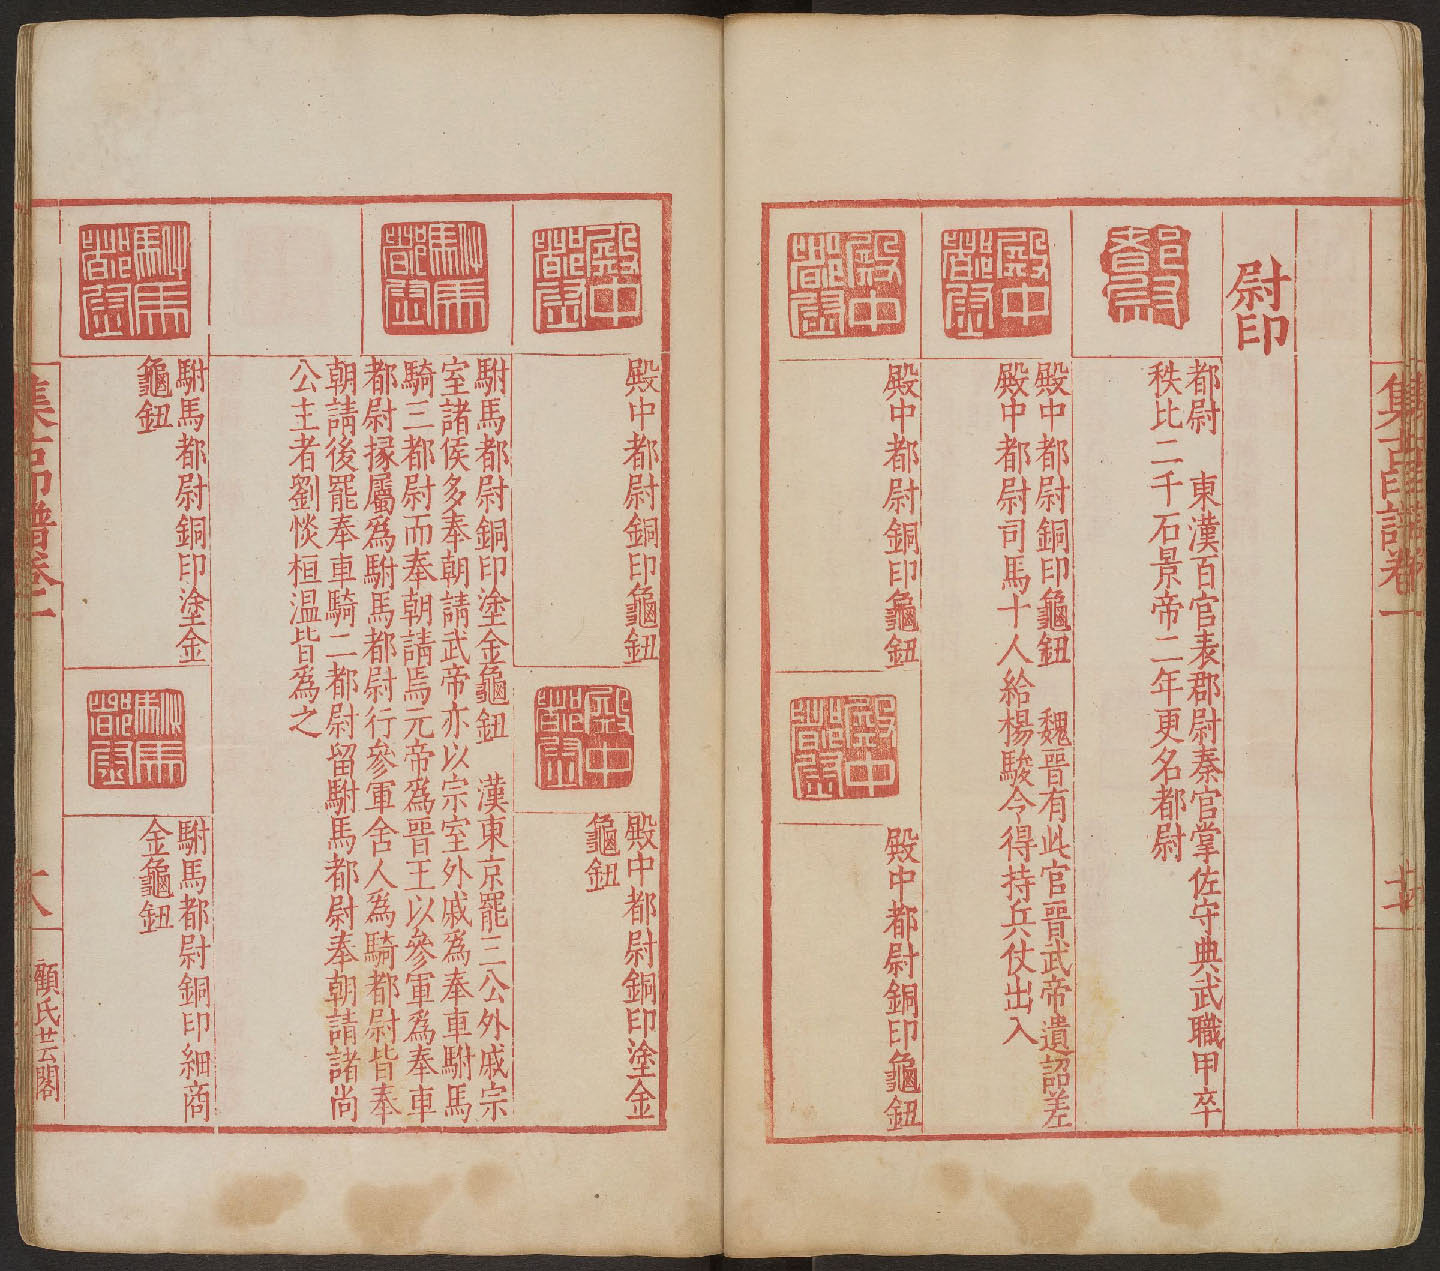 集古印譜卷二
尉印
都尉　東漢百官表郡尉秦官掌佐守典武職甲卒
秩比二千石景帝二年更名都尉
殿中都尉銅印龜鈕　魏晉有此官晉武帝遺詔差
殿中都尉司馬十人給楊駿令得持兵仗出入
殿中都尉
殿中都尉銅印龜鈕
殿中都尉
殿中都尉銅印龜鈕
殿中都尉
殿中都尉
殿中都尉銅印龜鈕
殿中都尉
殿中都尉銅印塗金
龜鈕
駙馬都尉
駙馬都尉銅印塗金龜鈕　漢東京罷三公外戚宗
室諸侯多奉朝請武帝亦以宗室外戚為奉車駙馬
騎三都尉而奉朝請焉元帝為晉王以參軍為奉車
都尉掾屬為駙馬都尉行參軍舍人為騎都尉皆奉
朝請後罷奉車騎二都尉留駙馬都尉奉朝請諸尚
公主者劉惔桓溫皆為之
駙馬都尉
駙馬都尉銅印塗金
龜鈕
駙馬都尉
駙馬都尉銅印細商
金龜鈕
集古印譜卷二
顧氏芸閣